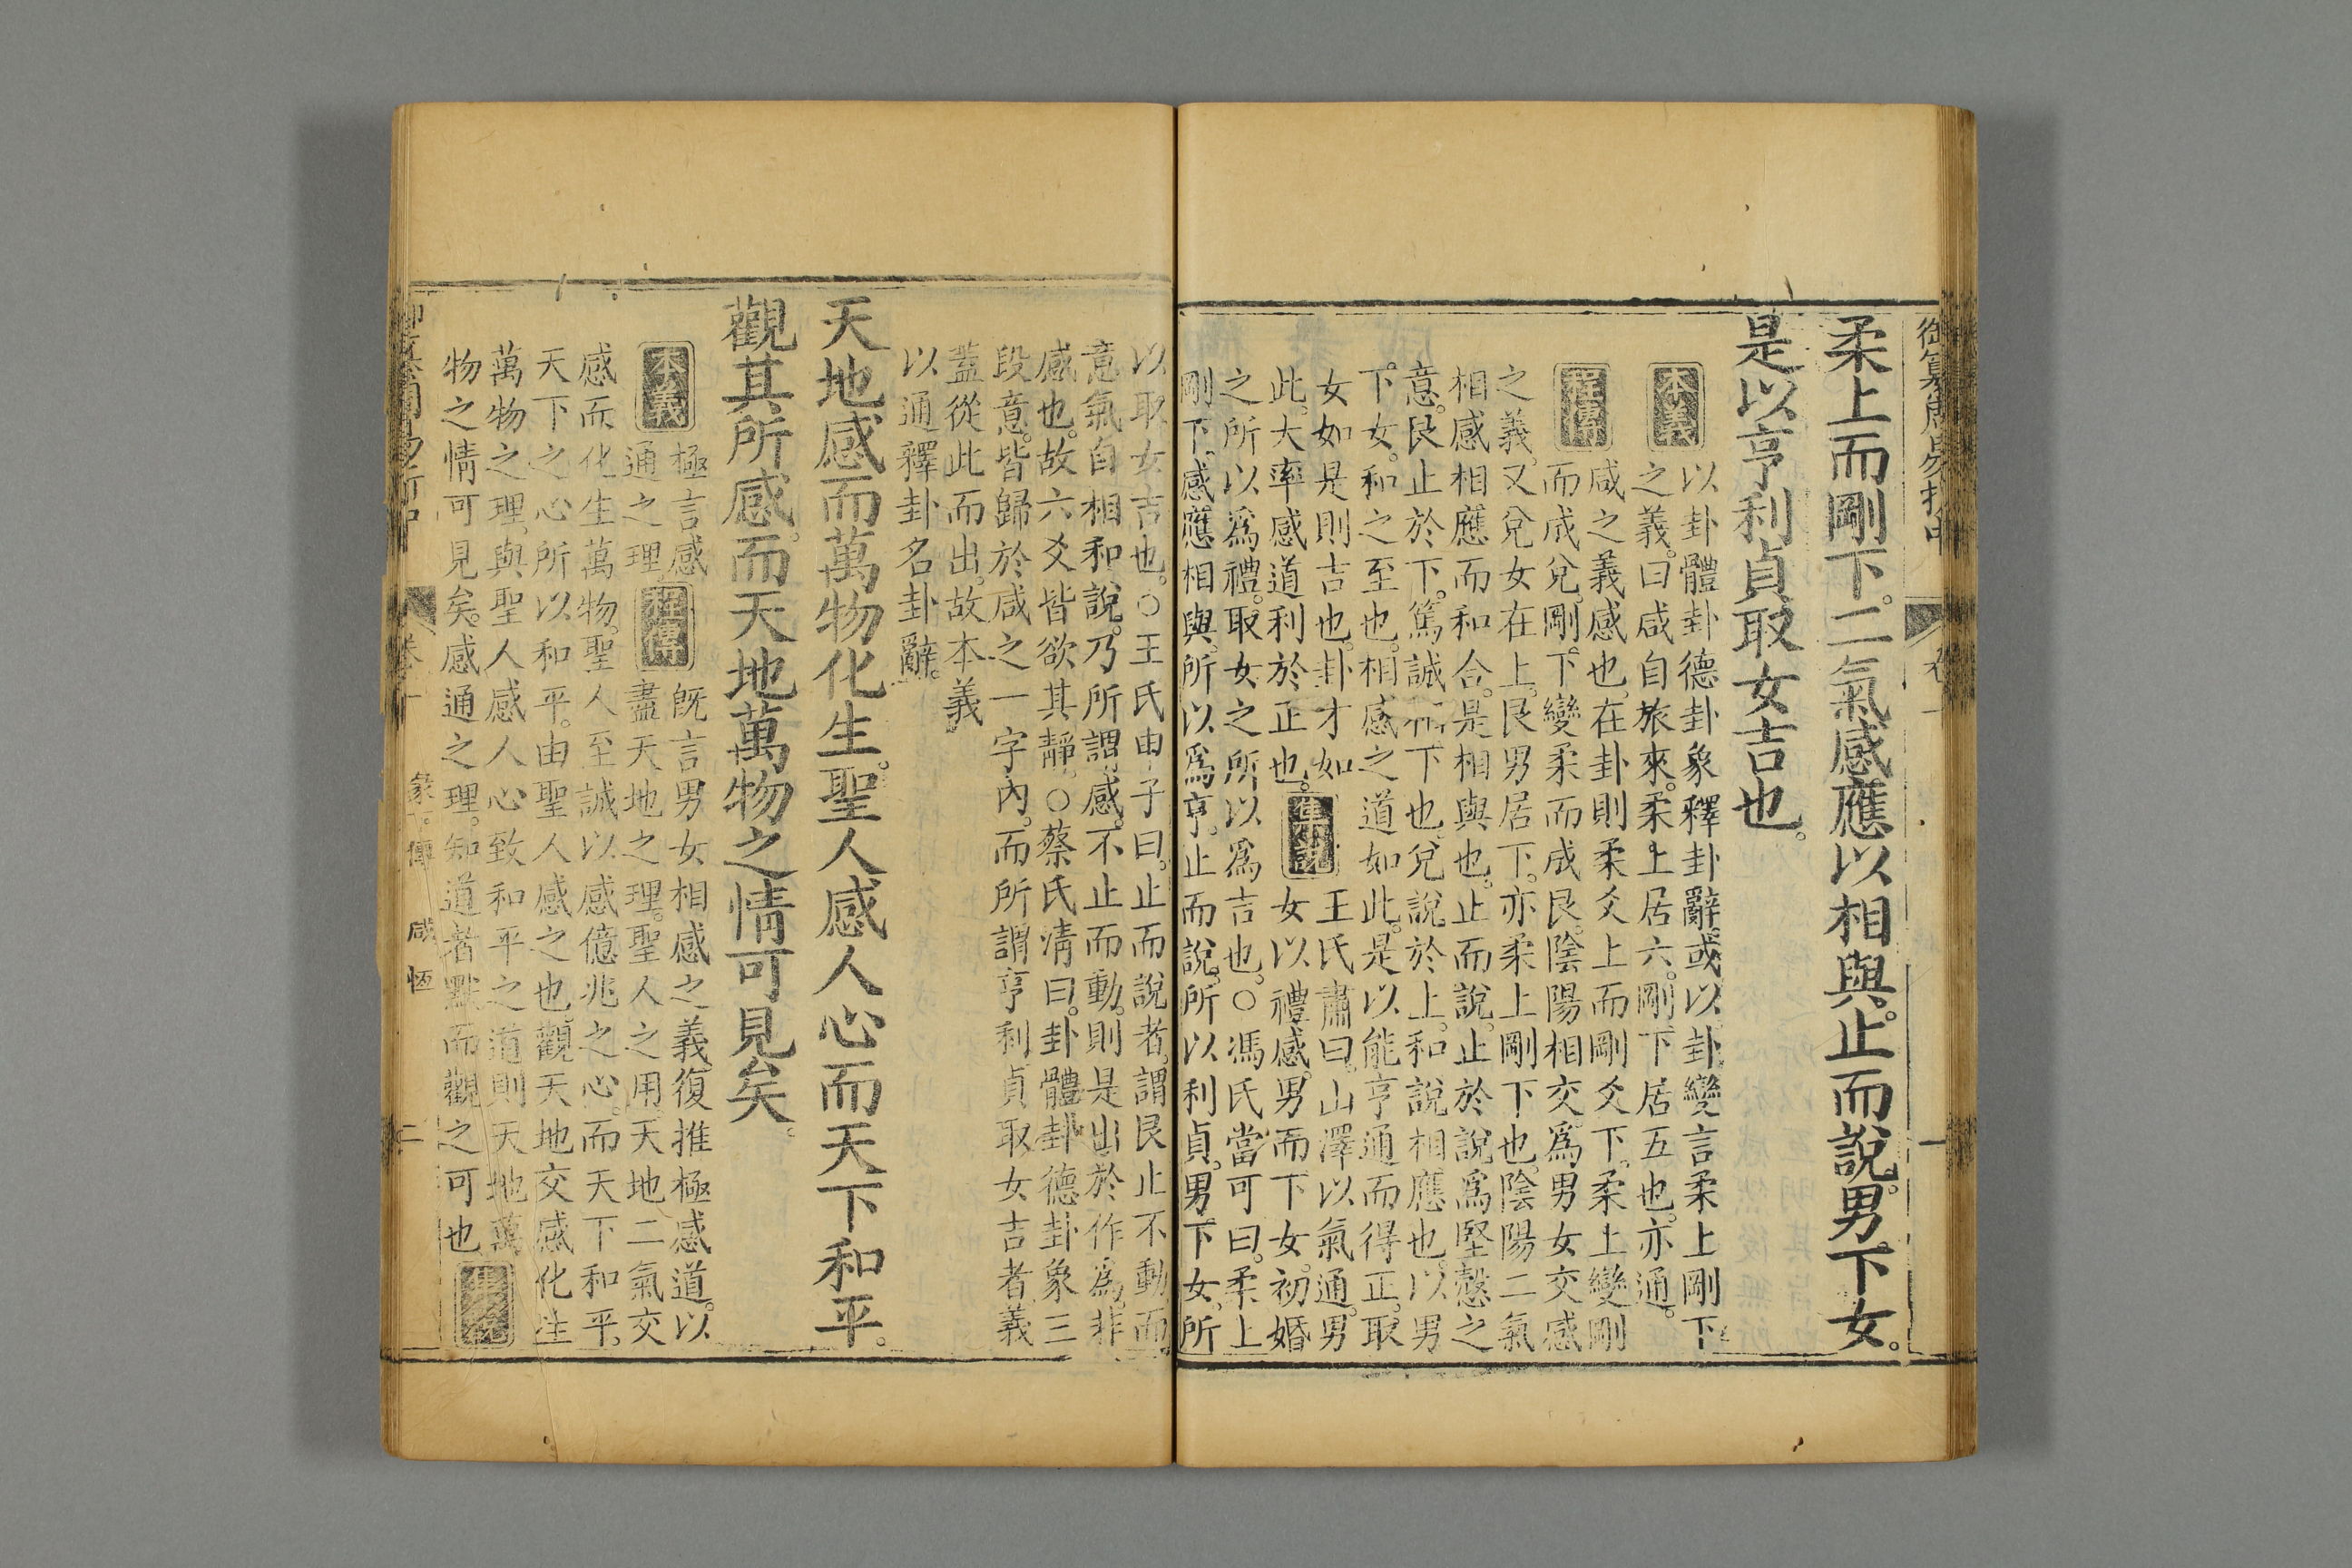 柔上而剛下。二氣感應以相與。止而說。男下女。
是以亨利貞取女吉也。
本義
以卦體卦德卦象釋卦辭。或以卦變言柔上剛下
之義。曰咸自旅來。柔上居六。剛下居五也。亦通。
程傳
咸之義感也。在卦則柔爻上而剛爻下。柔上變剛
而成兌。剛下變柔而成艮。陰陽相交。爲男女交感
之義。又兌女在上。艮男居下。亦柔上剛下也。陰陽二氣
相感相應而和合。是相與也。止而說。止於說爲堅慤之
意。艮止於下。篤誠相下也。兌說於上。和說相應也。以男
下女。和之至也。相感之道如此。是以能亨通而得正。取
女如是則吉也。卦才如
此。大率感道利於正也。
集說
王氏肅曰。山澤以氣通。男
女以禮感。男而下女。初婚
之所以爲禮。取女之所以爲吉也。○馮氏當可曰。柔上
剛下。感應相與。所以爲亨。止而說。所以利貞。男下女。所
以取女吉也。○王氏申子曰。止而說者。謂艮止不動而
意氣自相和說。乃所謂感。不止而動。則是出於作爲。非
感也。故六爻皆欲其靜。○蔡氏清曰。卦體卦德卦象三
段意。皆歸於咸之一字內。而所謂亨利貞取女吉者義
蓋從此而出。故本義
以通釋卦名卦辭。
天地感而萬物化生。聖人感人心而天下和平。
觀其所感。而天地萬物之情可見矣。
本義
極言感
通之理。
程傳
既言男女相感之義。復推極感道。以
盡天地之理。聖人之用。天地二氣交
感而化生萬物。聖人至誠以感億兆之心。而天下和平。
天下之心所以和平。由聖人感之也。觀天地交感化生
萬物之理。與聖人感人心致和平之道。則天地萬
物之情可見矣。感通之理。知道者默而觀之可也
集說
彖傳 咸 恆
二